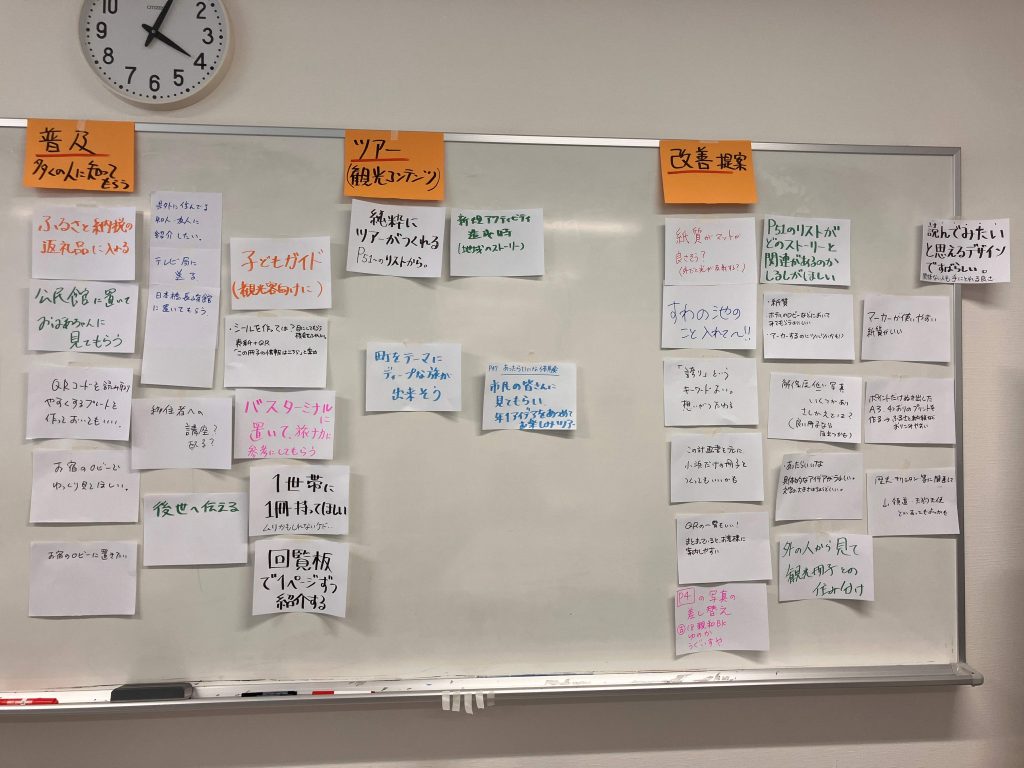 CITIZEN
2
3
4
5
6
7
8
普及
多くの人に知って
もらう
ふるさと納税の
返礼品に入れる
公民館に置いて
おばあちゃんに
見てもらう
QRコードを読み取り
やすくするプレートを
作ってもいい。
お宿のロビーで
ゆっくり見てほしい。
お宿のロビーに置きたい
県外に住んでる
知人・友人に
紹介したい。
テレビ局に
送る
日本橋長崎館
に置いてもらう
移住者への
講座?
後世へ伝える
子どもガイド
(観光客向けに)
・シールを作っては?
表紙+QR
「この冊子の情報はこちら」と
バスターミナル
に置いて、旅ナカに
参考にしてもらう
1世帯に
1冊持ってほしい
ムリかもしれないけど…
回覧板
で1ページずつ
紹介する
ツアー
(観光コンテンツ)
純粋に
ツアーがつくれる
P51〜のリストから。
新規アクティビティ
造成時
(地域のストーリー)
町をテーマに
ディープな旅が
出来そう
P47 あったらいいな体験会
市民の皆さんに
見てもらい
年1アイデアをあつめて
お楽しみツアー
改善提案
紙質がマットが
良さそう?
すわの池の
こと入れて〜!!
「誇り」という
キーワードよい。
想いがつたわる
この計画書を元に
小浜だけの冊子を
つくってもいいかも
QRの一覧もいい!
まとまっていると、お客様に
案内しやすい
P4の写真の
差し替え
P51のリストが
どのストーリーと
関連があるのか
しるしがほしい
・紙質
解像度低い写真
いくつかあり
さしかえては?
・あったらいいな
具体的なアイデアがうれしい。
外の人から見て
観光冊子との
住み分け
読んでみたい
と思えるデザイン
ですばらしい。
マーカーが使いやすい
紙質がいい
ポイントだけぬき出した